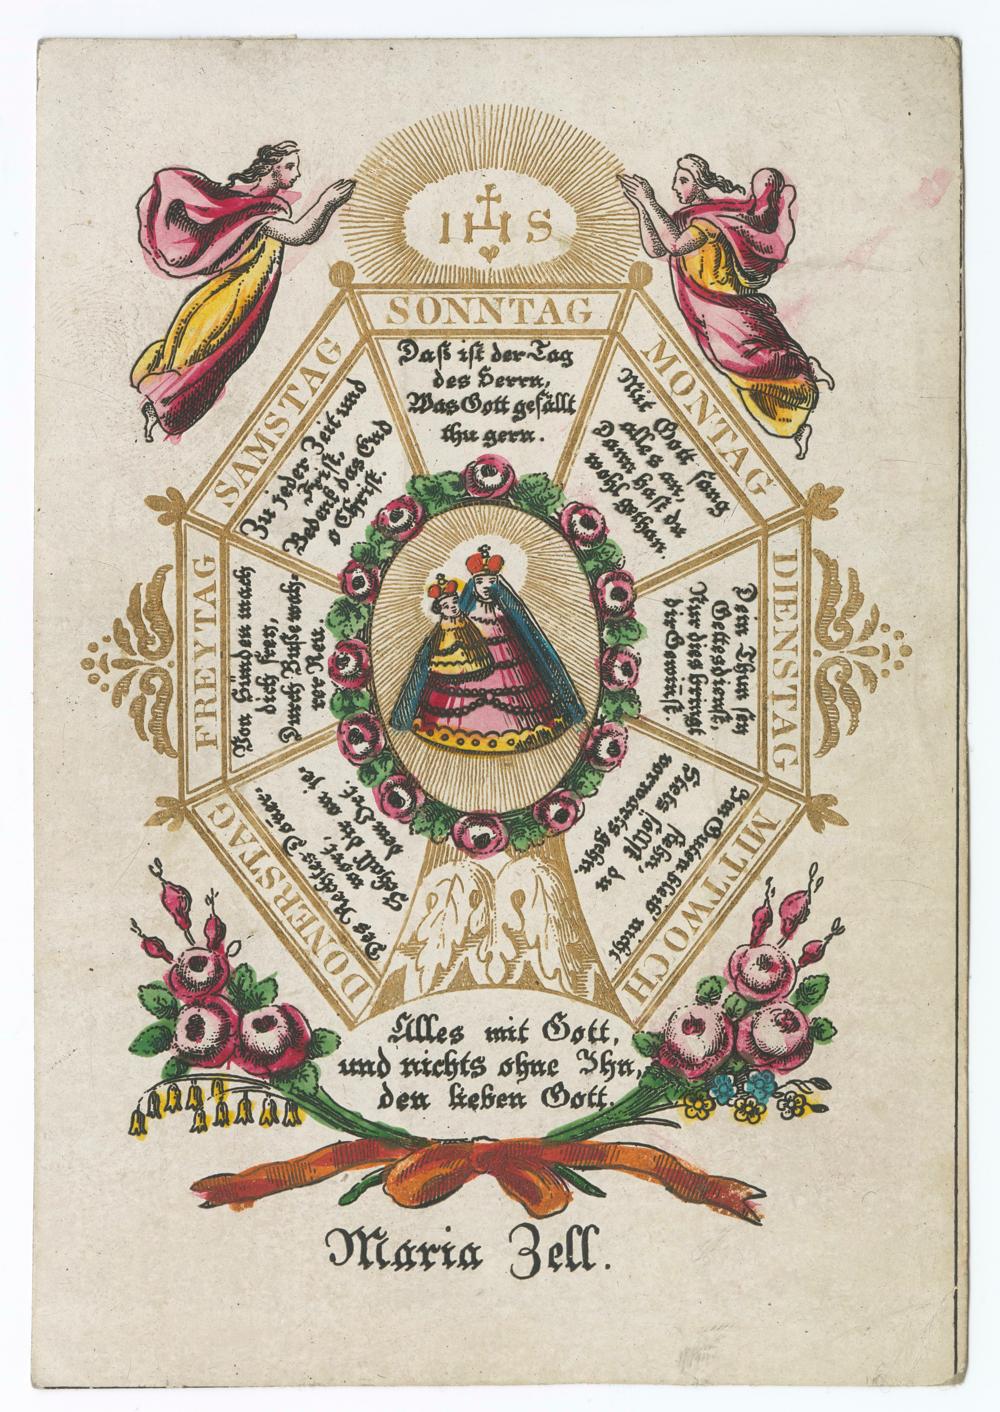 IHS
SONNTAG
Daß ist der Tag
des Herrn,
Was Gott gefällt
thu gern.
MONTAG
Mit Gott fang
alles an,
Dann hast du
wohl gethan.
DIENSTAG
Dein Thun sey
Gottesdienst,
Nur dies bringt
dir Gewin̅st.
MITTWOCH
Im Guten bleib nicht
stehn,
Stets sollst du
vorwärts gehn.
DONERSTAG
Des Rechtes Donner-
wort,
Schall dir an je-
dem Ort.
FREYTAG
Von Sünden mach
dich frey,
Durch Buße wah-
rer Reu.
SAMSTAG
Zu jeder Zeit und
Frist,
Bedenk das End
o Christ.
Alles mit Gott,
und nichts ohne Ihn,
den lieben Gott.
Maria Zell.